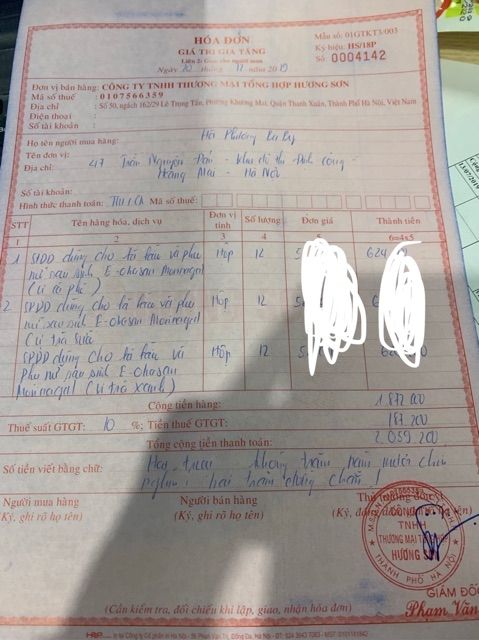 HÓA ĐƠN
GIÁ TRỊ GIA TĂNG
Liên 2: Giao cho người mua
Ngày 20 tháng 11 năm 2019
Mẫu số: 01GTKT3/003
Ký hiệu: HS/18P
Số 0004142
Đơn vị bán hàng: CÔNG TY TNHH THƯƠNG MẠI TỔNG HỢP HƯƠNG SƠN
Mã số thuế : 0107566359
Địa chỉ : Số 50, ngách 162/29 Lê Trọng Tấn, Phường Khương Mai, Quận Thanh Xuân, Thành Phố Hà Nội, Việt Nam
Điện thoại :
Số tài khoản :
Họ tên người mua hàng: Hà Phương
Tên đơn vị:
Địa chỉ: 47 Trần Nguyên Đán - Khu đô thị Định Công -
Hoàng Mai - Hà Nội
Số tài khoản:
Hình thức thanh toán: TM/CK Mã số thuế:
STT Tên hàng hóa, dịch vụ Đơn vị tính Số lượng Đơn giá Thành tiền
1 2 3 4 5 6=4x5
1 SPDD dùng cho bà bầu và phụ Hộp 12 624
nữ sau sinh E-okasan Morinaga
(vị cà phê)
2 SPDD dùng cho bà bầu và phụ Hộp 12
nữ sau sinh E-okasan Morinaga
(vị trà sữa)
SPDD dùng cho bà bầu và Hộp 12
phụ nữ sau sinh E-okasan
Morinaga (vị trà xanh)
Cộng tiền hàng: 1.872.000
Thuế suất GTGT: 10 %; Tiền thuế GTGT: 187.200
Tổng cộng tiền thanh toán: 2.059.200
Số tiền viết bằng chữ: Hai triệu không trăm năm mươi chín
nghìn, hai trăm đồng chẵn!
Người mua hàng Người bán hàng Thủ trưởng đơn
(Ký, ghi rõ họ tên) (Ký, ghi rõ họ tên) (Ký, đóng
CÔNG TY
TNHH
THƯƠNG MẠI TỔNG HỢP
HƯƠNG SƠN
THÀNH PHỐ HÀ NỘI
GIÁM ĐỐC
Phạm Văn
(Cần kiểm tra, đối chiếu khi lập, giao, nhận hóa đơn)